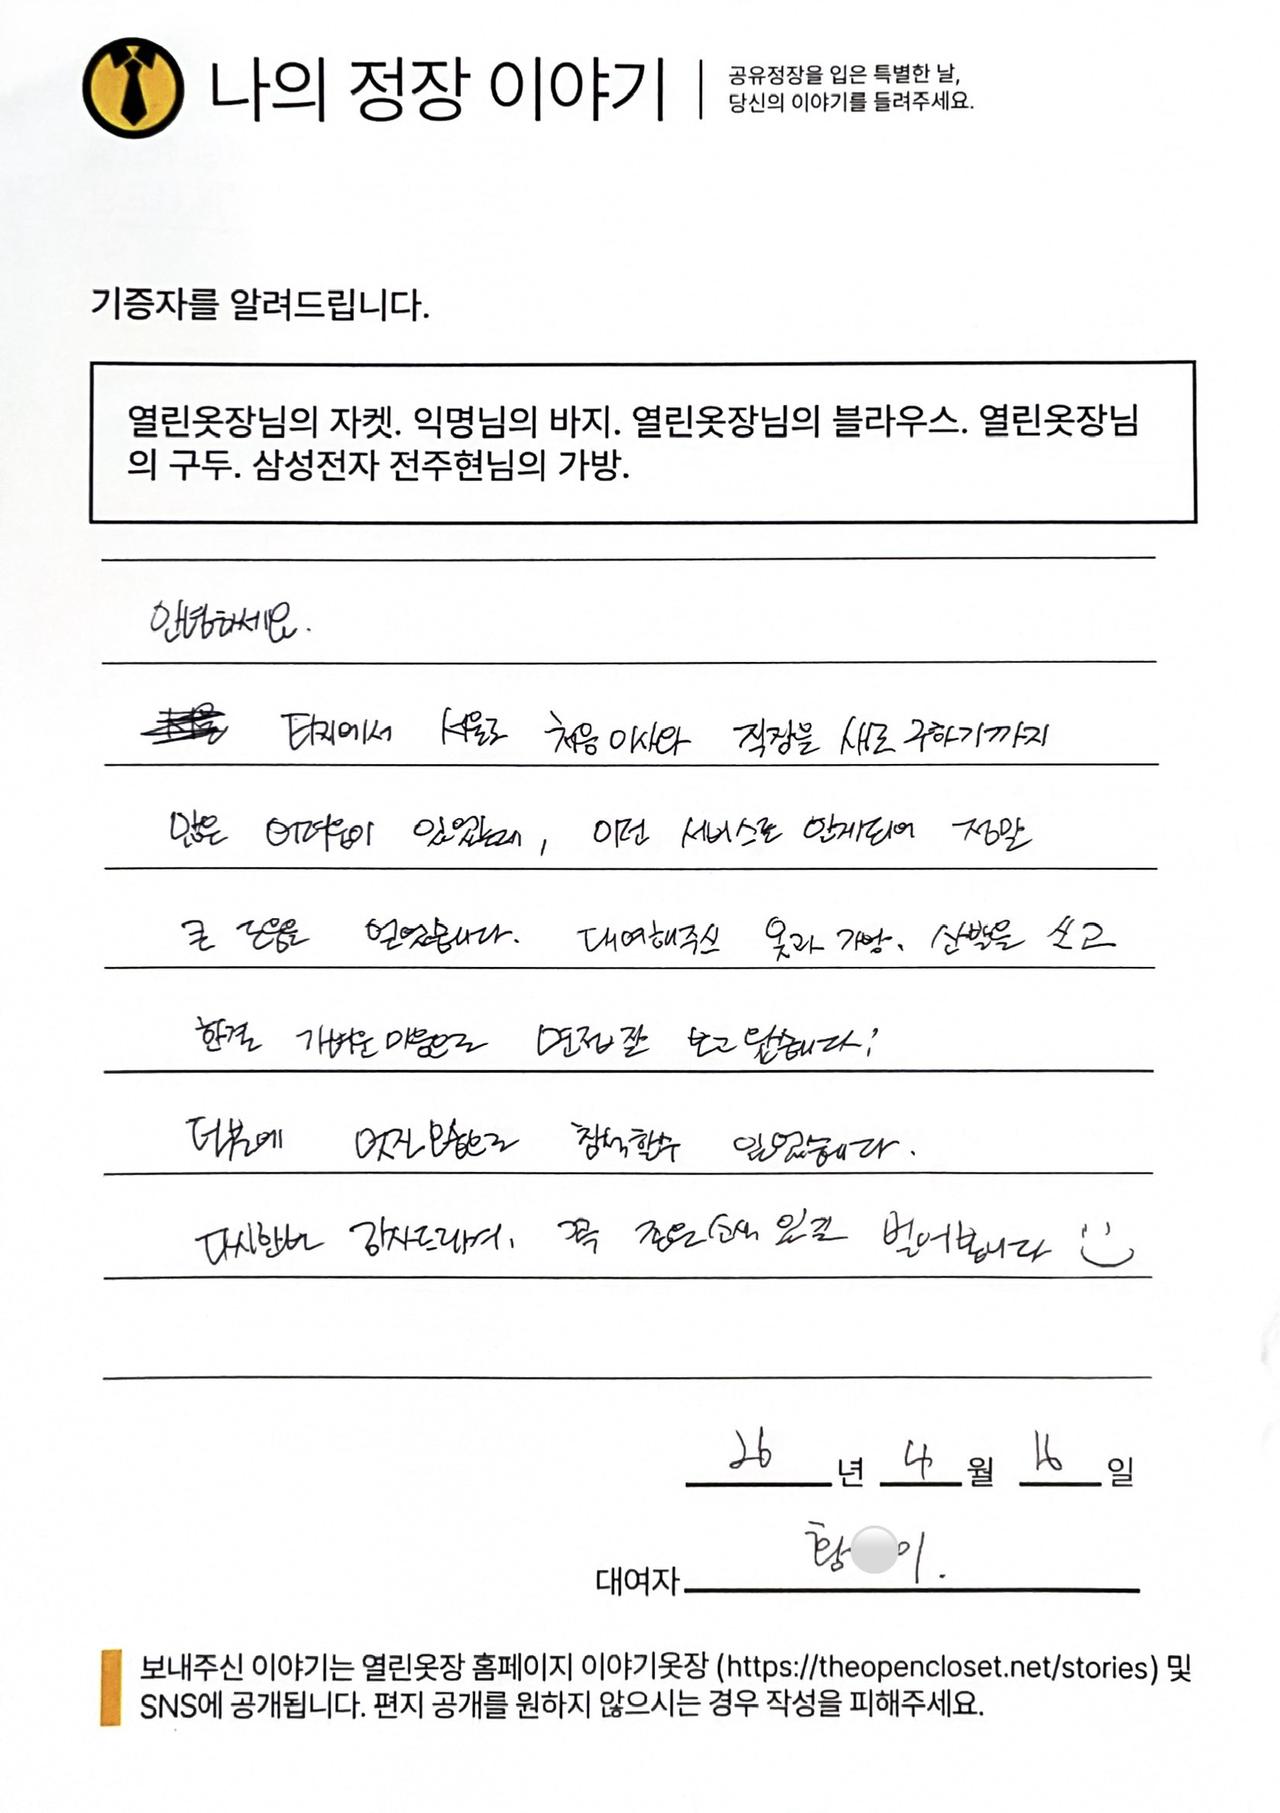 나의 정장 이야기
공유정장을 입은 특별한 날,
당신의 이야기를 들려주세요.
기증자를 알려드립니다.
열린옷장님의 자켓. 익명님의 바지. 열린옷장님의 블라우스. 열린옷장님
의 구두. 삼성전자 전주현님의 가방.
안녕하세요.
타지에서 서울로 처음 이사와 직장을 새로 구하기까지
많은 어려움이 있었는데, 이런 서비스를 알게되어 정말
큰 도움을 얻었습니다. 대여해주신 옷과 가방, 신발을 신고
한결 가벼운 마음으로 면접 잘 보고 왔습니다!
덕분에 멋진 모습으로 참석할수 있었습니다.
다시한번 감사드리며, 꼭 좋은소식 있길 빌어봅니다
26 년 4 월 16 일
대여자 황 이.
보내주신 이야기는 열린옷장 홈페이지 이야기옷장 (https://theopencloset.net/stories) 및
SNS에 공개됩니다. 편지 공개를 원하지 않으시는 경우 작성을 피해주세요.